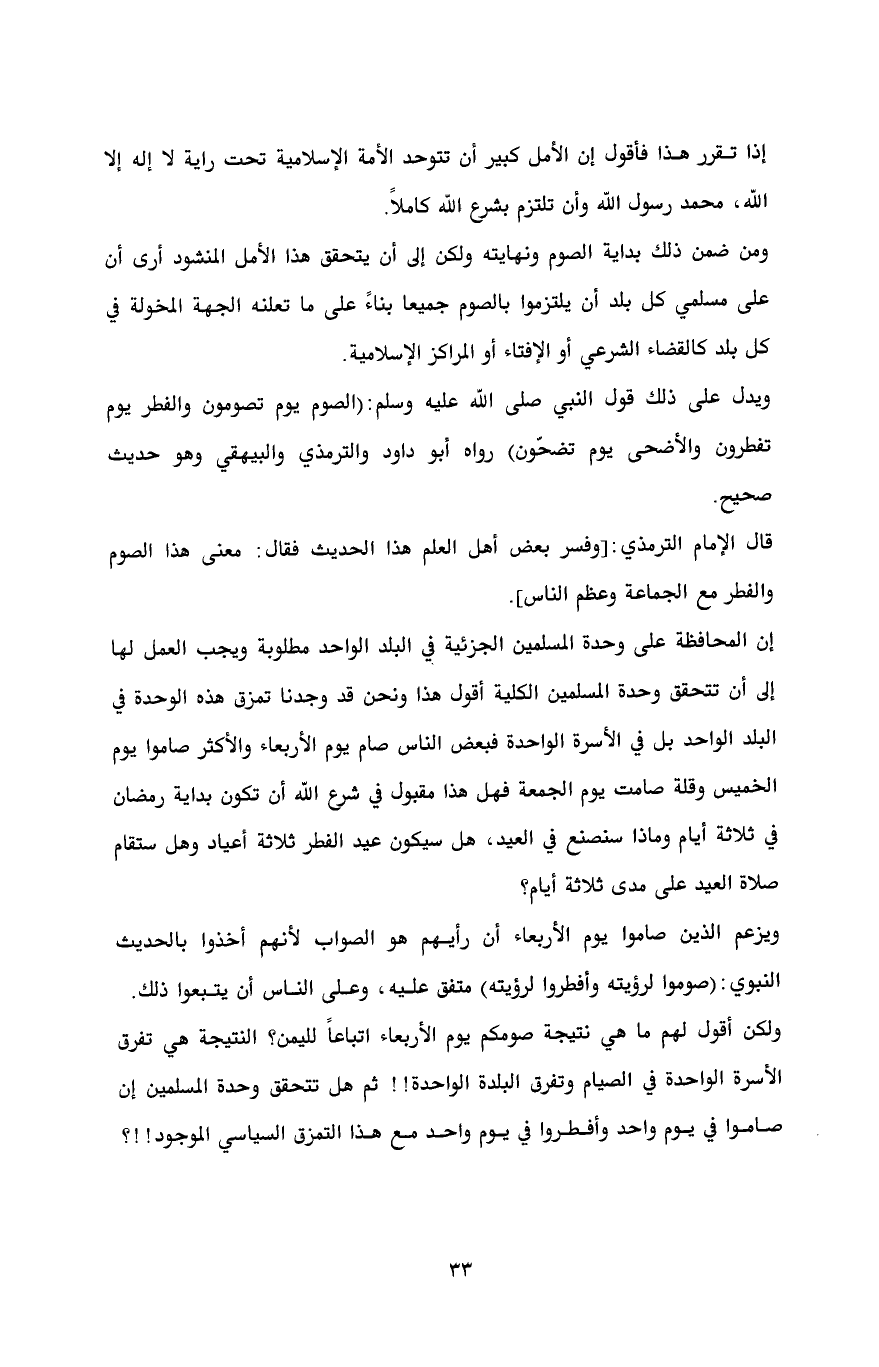 إذا تـقرر هـذا فأقول إن الأمل كبير أن تتوحد الأمة الإسلامية تحت راية لا إله إلا
الله، محمد رسول الله وأن تلتزم بشرع الله كاملاً.
ومن ضمن ذلك بداية الصوم ونهايته ولكن إلى أن يتحقق هذا الأمل المنشود أرى أن
على مسلمي كل بلد أن يلتزموا بالصوم جميعا بناءً على ما تعلنه الجهة المخولة في
كل بلد كالقضاء الشرعي أو الإفتاء أو المراكز الإسلامية.
ويدل على ذلك قول النبي صلى الله عليه وسلم:(الصوم يوم تصومون والفطر يوم
تفطرون والأضحى يوم تضحّون) رواه أبو داود والترمذي والبيهقي وهو حديث
صحيح.
قال الإمام الترمذي:[وفسر بعض أهل العلم هذا الحديث فقال: معنى هذا الصوم
والفطر مع الجماعة وعظم الناس].
إن المحافظة على وحدة المسلمين الجزئية في البلد الواحد مطلوبة ويجب العمل لها
إلى أن تتحقق وحدة المسلمين الكلية أقول هذا ونحن قد وجدنا تمزق هذه الوحدة في
البلد الواحد بل في الأسرة الواحدة فبعض الناس صام يوم الأربعاء والأكثر صاموا يوم
الخميس وقلة صامت يوم الجمعة فهل هذا مقبول في شرع الله أن تكون بداية رمضان
في ثلاثة أيام وماذا سنصنع في العيد، هل سيكون عيد الفطر ثلاثة أعياد وهل ستقام
صلاة العيد على مدى ثلاثة أيام؟
ويزعم الذين صاموا يوم الأربعاء أن رأيـهم هو الصواب لأنهم أخذوا بالحديث
النبوي:(صوموا لرؤيته وأفطروا لرؤيته) متفق علـيه، وعـلى النـاس أن يتـبعوا ذلك.
ولكن أقول لهم ما هي نتيجة صومكم يوم الأربعاء اتباعاً لليمن؟ النتيجة هي تفرق
الأسرة الواحدة في الصيام وتفرق البلدة الواحدة!! ثم هل تتحقق وحدة المسلمين إن
صـامـوا في يـوم واحد وأفـطـروا في يـوم واحـد مـع هـذا التمزق السياسي الموجود!!؟
٣٣